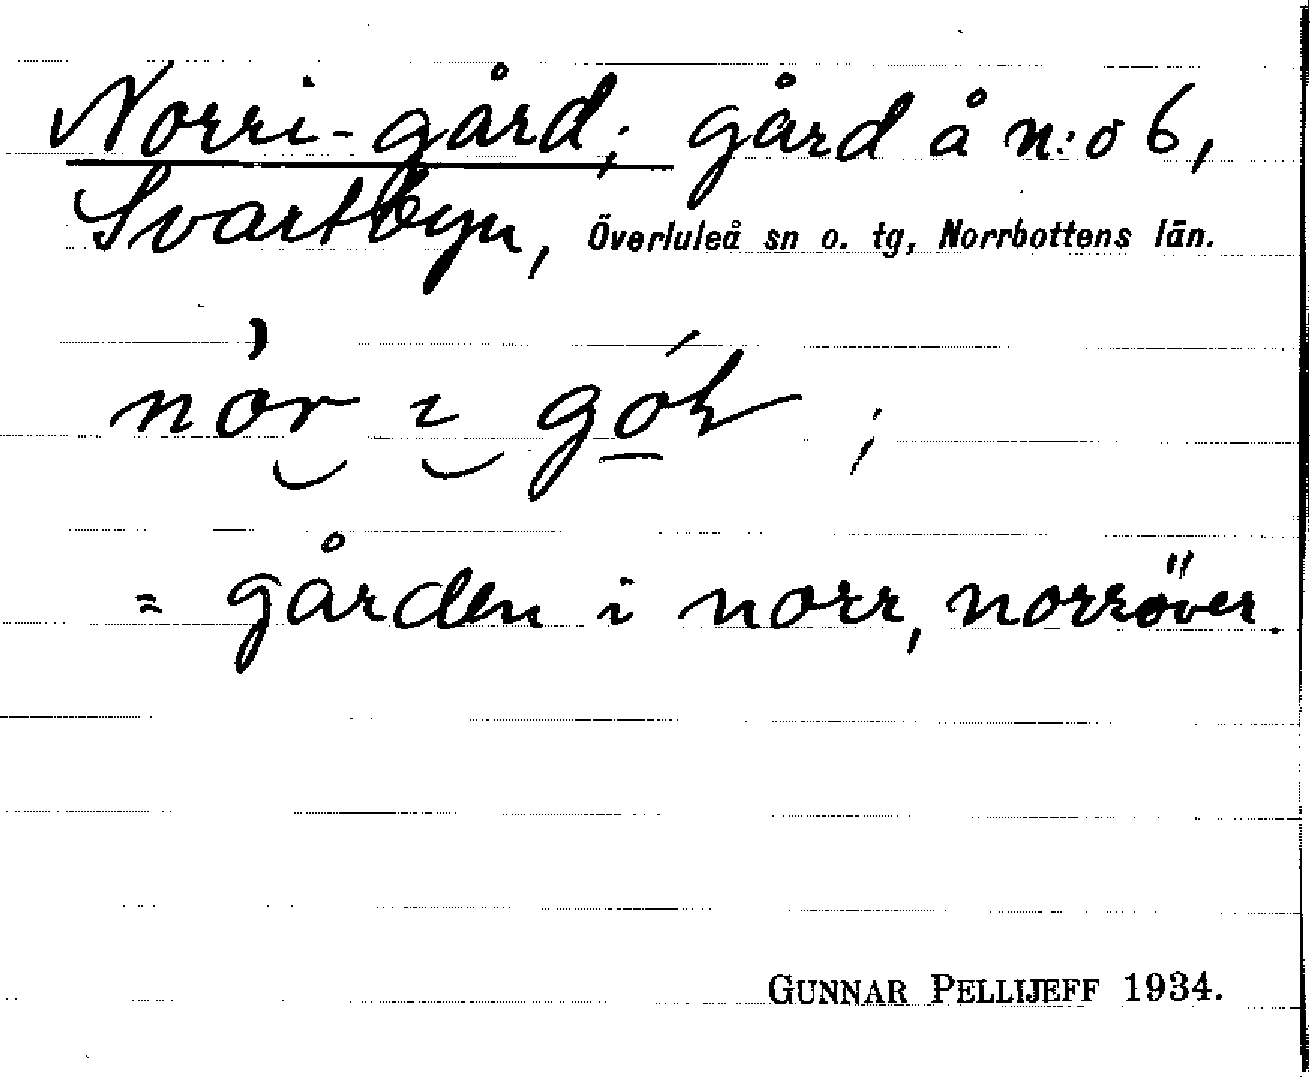 Norri-gård; gård å n:o 6,
Svartbyn, Överluleå sn o. tg, Norrbottens län.
= gården i norr, norröver.
GUNNAR PELLIJEFF 1934.